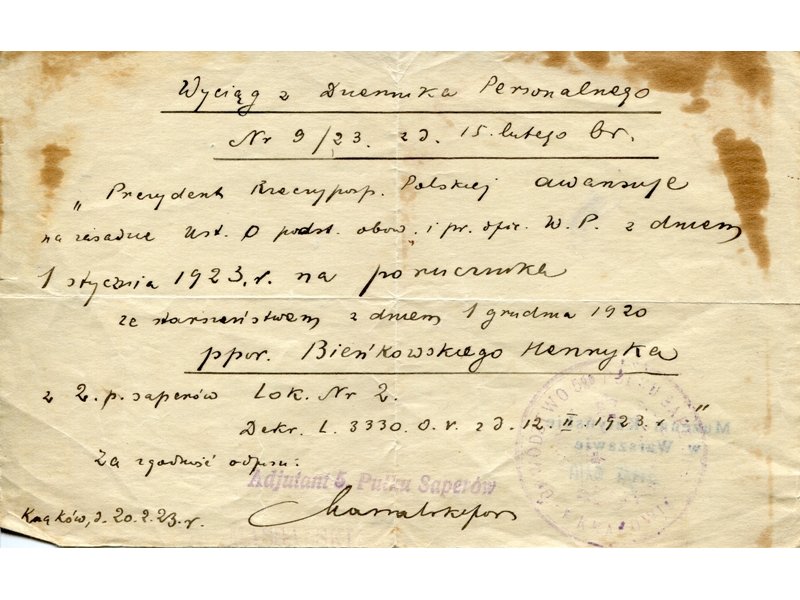 Wyciąg z Dziennika Personalnego
Nr 9/23. z d. 15. lutego br.
„Prezydent Rzeczyposp. Polskiej awansuje
na zasadzie Ust. O podst. obow. i pr. ofic. W.P. z dniem
1 stycznia 1923.r. na porucznika
ze starszeństwem z dniem 1 grudnia 1920
ppor. Bieńkowskiego Henryka
z 2. p. saperów Lok. Nr 2.
Dekr. L. 3330.O.V. z d. 12. II 1923 r."
Za zgodność odpisu:
Adjutant 5. Pułku Saperów
Kraków, d. 20.2.23.r.
w Warszawie